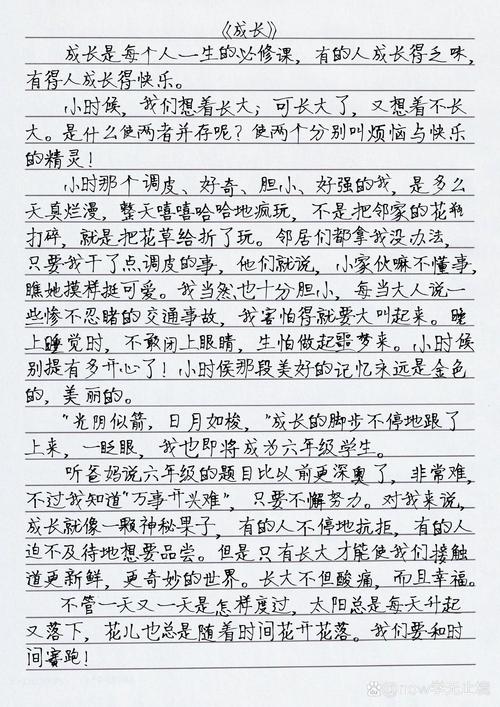 《成长》
成长是每个人一生的必修课，有的人成长得乏味，
有得人成长得快乐。
小时候，我们想着长大；可长大了，又想着不长
大。是什么使两者并存呢？使两个分别叫烦恼与快乐
的精灵！
小时那个调皮、好奇、胆小、好强的我，是多么
天真烂漫，整天嘻嘻哈哈地疯玩，不是把邻家的花瓶
打碎，就是把花草给折了玩。邻居们都拿我没办法，
只要我干了点调皮的事，他们就说，小家伙嘛不懂事，
瞧她摸样挺可爱。我当然也十分胆小，每当大人说一
些惨不忍睹的交通事故，我害怕得就要大叫起来。晚
上睡觉时，不敢闭上眼睛，生怕做起噩梦来。小时候
别提有多开心了！小时候那段美好的记忆永远是金色
的，美丽的。
"光阴似箭，日月如梭，"成长的脚步不停地跟了
上来，一眨眼，我也即将成为六年级学生。
听爸妈说六年级的题目比以前更深奥了，非常难，
不过我知道"万事开兴难"，只要不懈努力。对我来说，
成长就像一颗神秘果子，有的人不停地抗拒，有的人
迫不及待地想要品尝。但是只有长大才能使我们接触
道更新鲜，更奇妙的世界。长大不但酸痛，而且幸福。
不管一天又一天是怎样度过，太阳总是每天升起
又落下，花儿也总是随着时间花开花落。我们要和时
间赛跑！
now学无止境